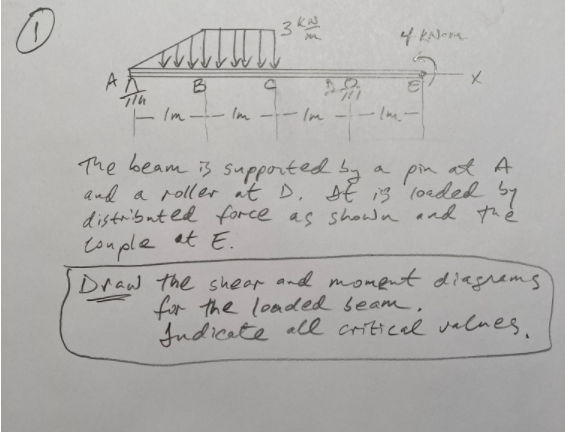 1
3 kN/m
4 kN·m
A B C D E X
1m 1m 1m 1m
The beam is supported by a pin at A
and a roller at D. It is loaded by
distributed force as shown and the
couple at E.
Draw the shear and moment diagrams
for the loaded beam.
Indicate all critical values.